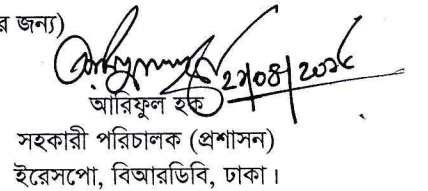 র জন্য)
২১/০৪/২০১৫
আরিফুল হক
সহকারী পরিচালক (প্রশাসন)
ইরেসপো, বিআরডিবি, ঢাকা।